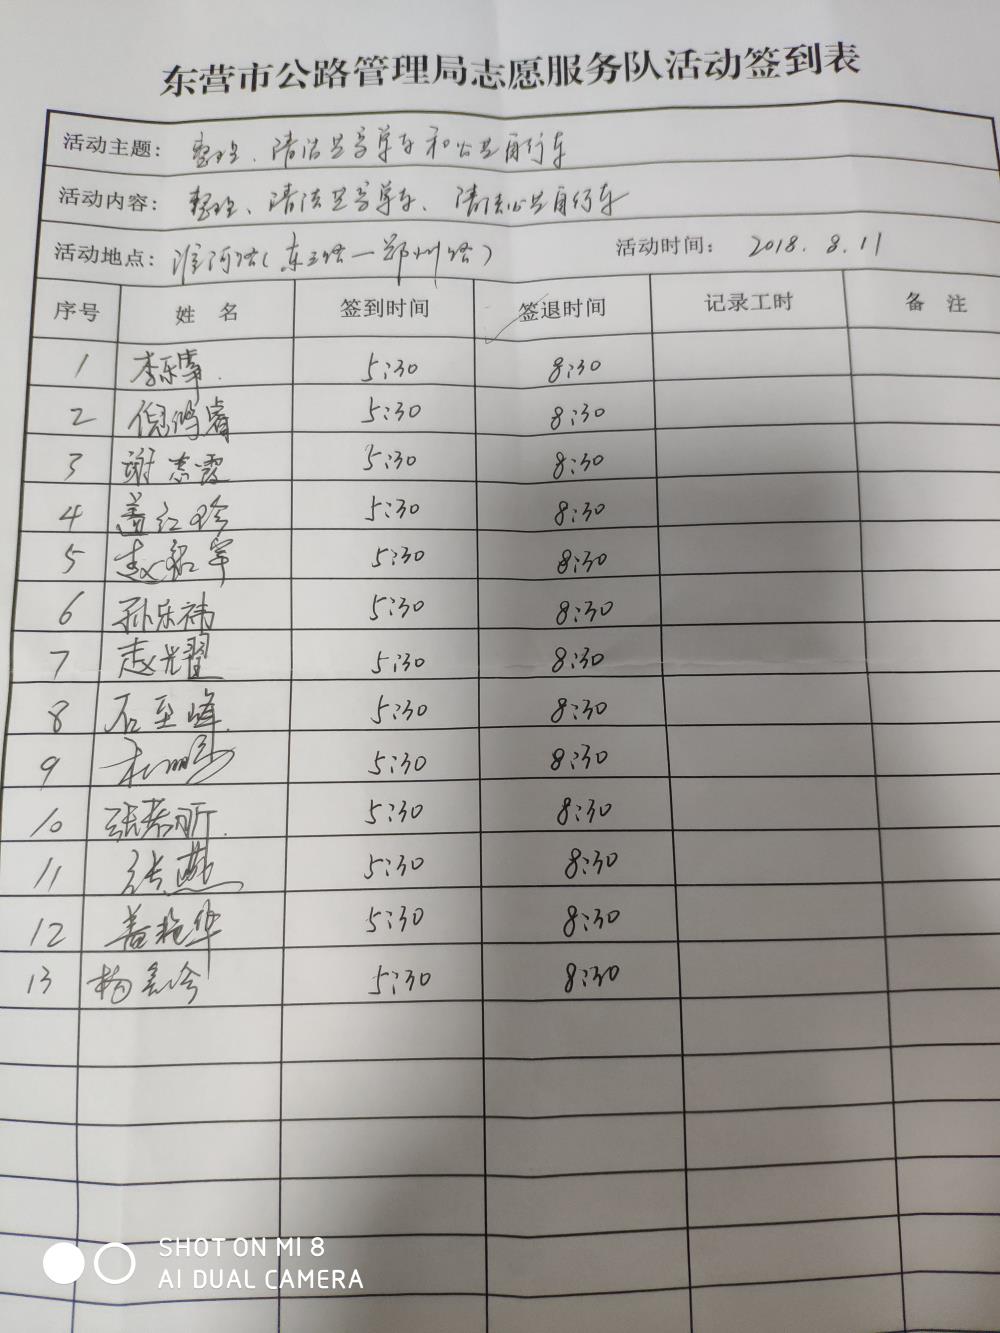 东营市公路管理局志愿服务队活动签到表
活动主题： 整理、清洁共享单车和公共自行车
活动内容： 整理、清洁共享单车、清洁公共自行车
活动地点： 淮河路（东三路—郑州路） 活动时间： 2018.8.11
序号 姓 名 签到时间 签退时间 记录工时 备 注
1 李乐 5:30 8:30
2 倪鸿睿 5:30 8:30
3 谢志霞 5:30 8:30
4 盖红珍 5:30 8:30
5 赵铭宇 5:30 8:30
6 孙乐祎 5:30 8:30
7 赵光耀 5:30 8:30
8 石至峰 5:30 8:30
9 5:30 8:30
10 张春昕 5:30 8:30
11 张燕 5:30 8:30
12 盖艳华 5:30 8:30
13 杨 5:30 8:30
SHOT ON MI 8
AI DUAL CAMERA